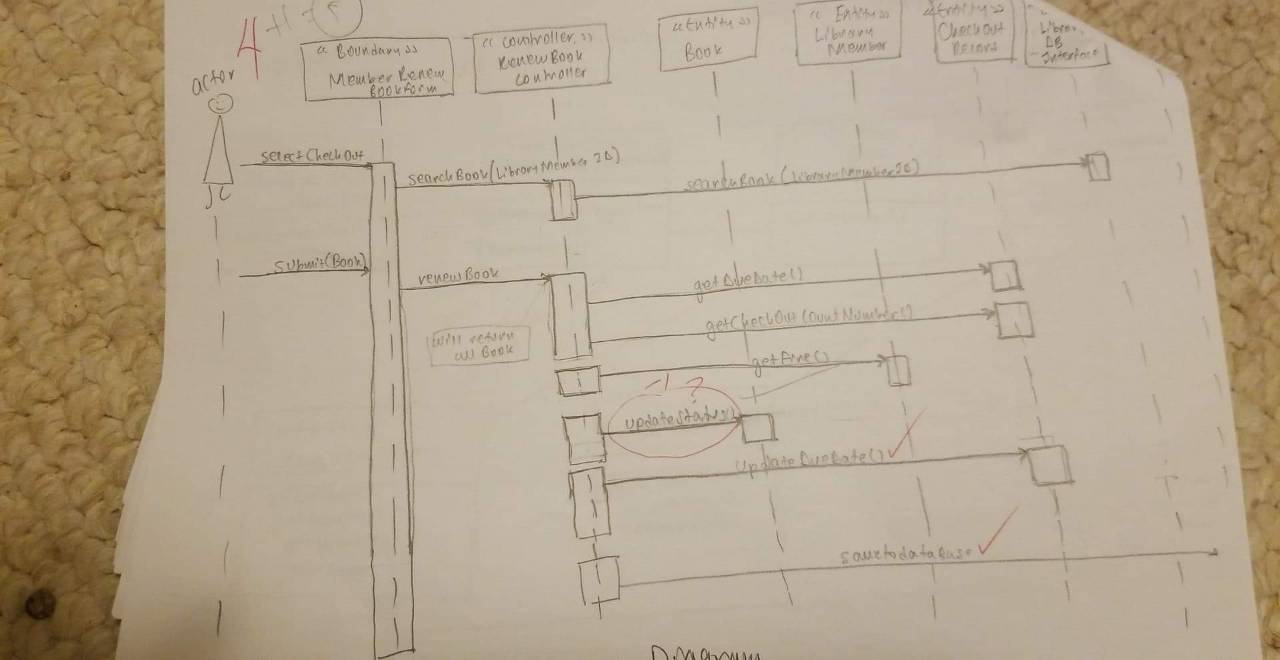 4
actor
<< Boundary >>
Member Renew
Bookform
<< controller >>
RenewBook
controller
<<Entity>>
Book
<< Entity>>
Library
Member
<<Entity>>
CheckOut
DB
Interface
selectCheckOut
searchBook(LibraryMemberID)
searchBook(LibraryMemberID)
submit(Book)
renewBook
getDueDate()
getCheckOutCountNumber()
will return
all Book
getFine()
-1 ?
updateStatus()
UpdateDueDate()
savetodatabase
Diagram